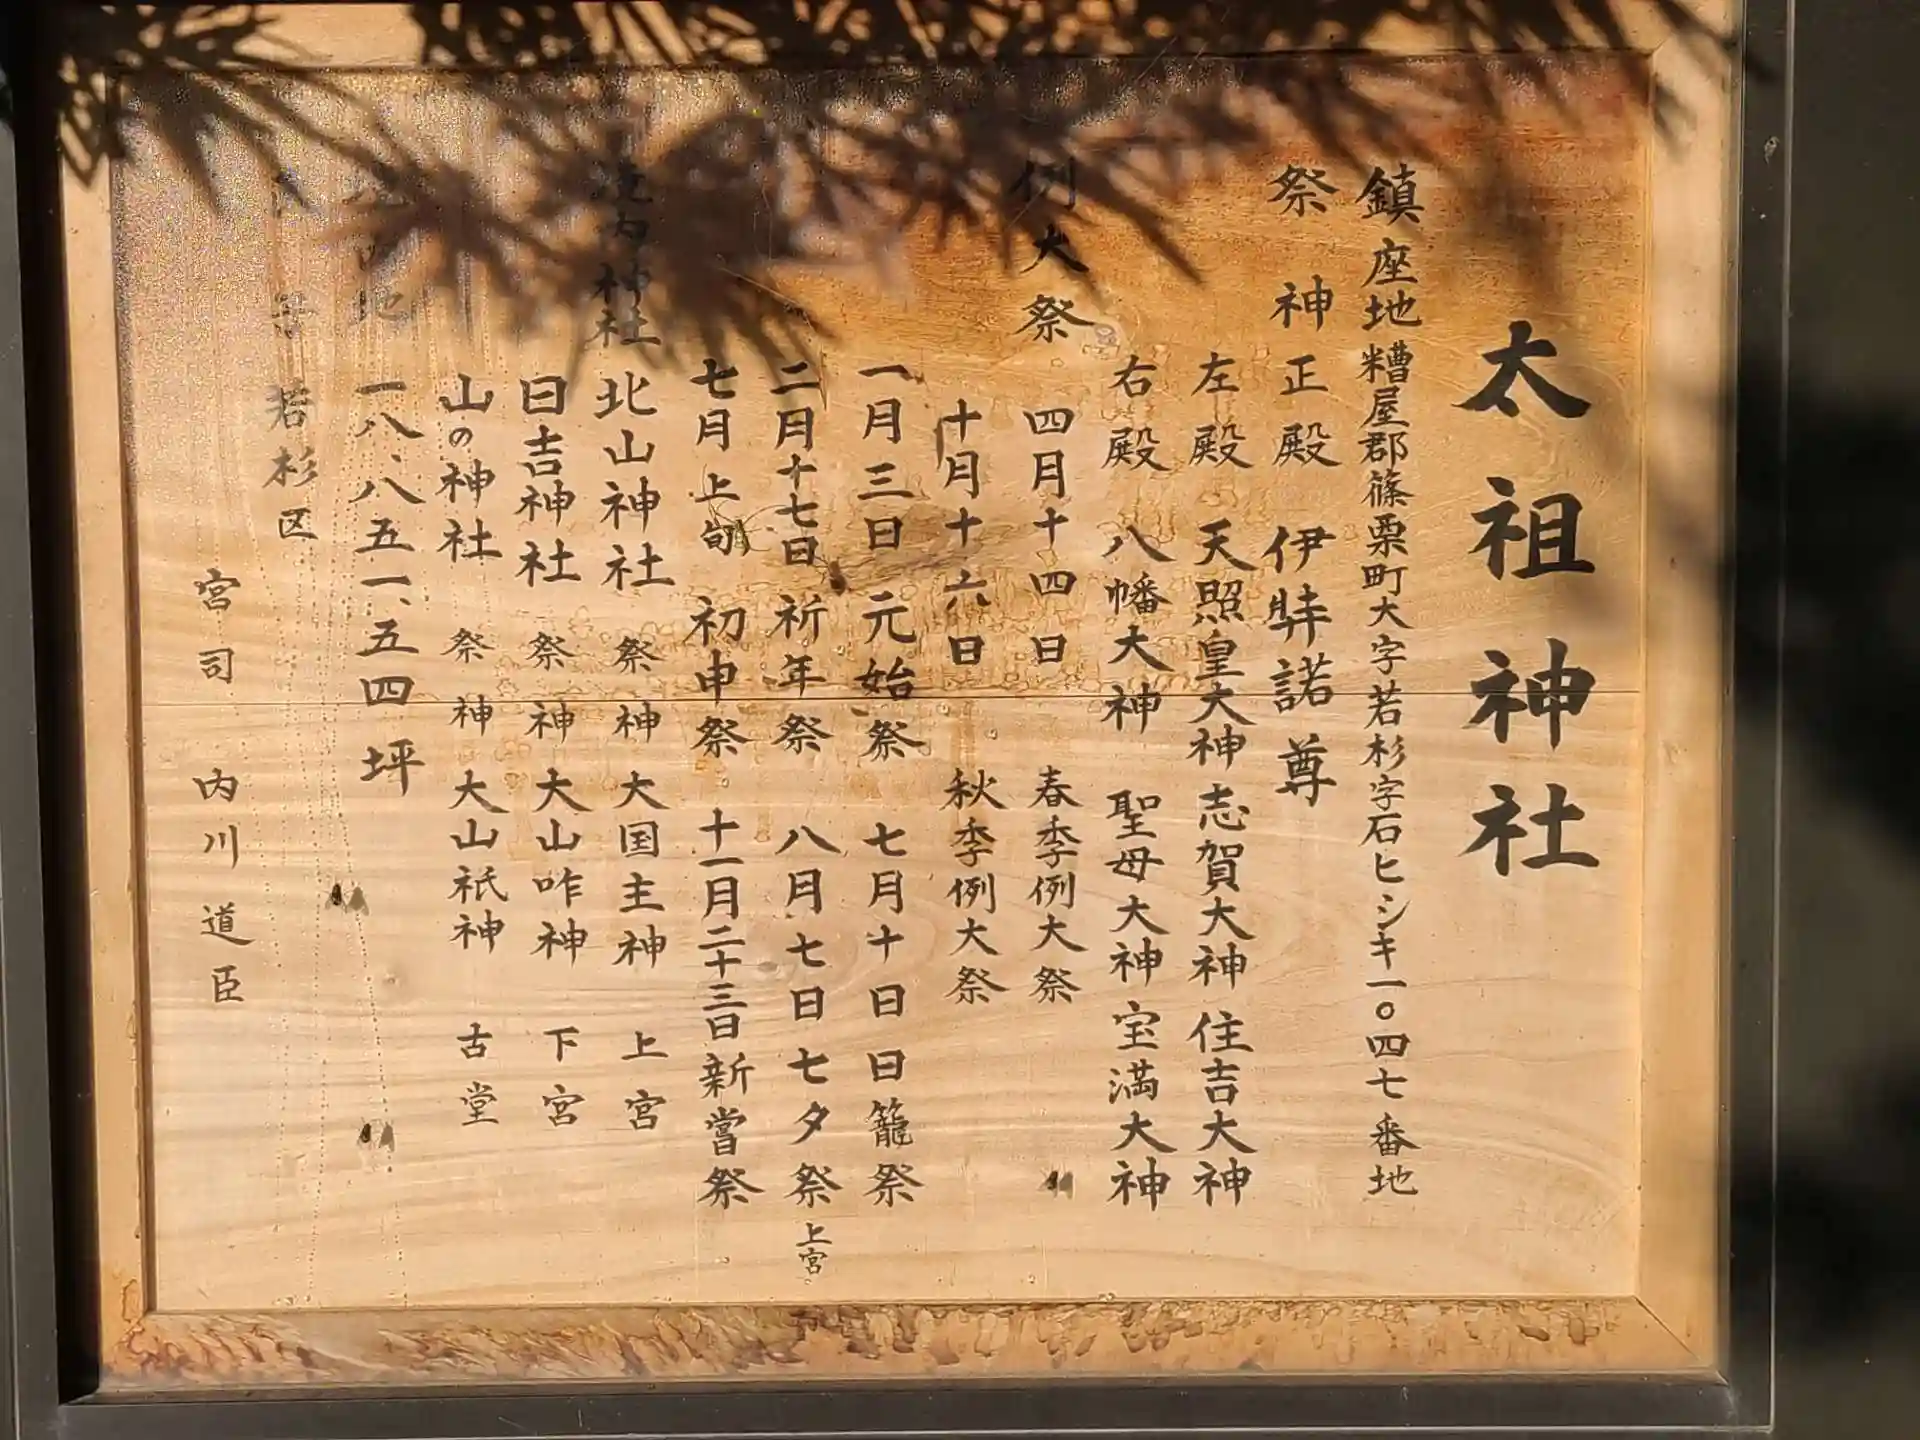 太祖神社
鎮座地 糟屋郡篠栗町大字若杉字石ヒシキ一〇四七番地
祭神 正殿 伊弉諾尊
左殿 天照皇大神 志賀大神 住吉大神
右殿 八幡大神 聖母大神 宝満大神
例大祭 四月十四日 春季例大祭
十月十六日 秋季例大祭
一月三日 元始祭 七月十日 日籠祭
二月十七日 祈年祭 八月七日 七夕祭 上宮
七月上旬 初申祭 十一月二十三日 新嘗祭
境内神社 北山神社 祭神 大国主神 上宮
日吉神社 祭神 大山咋神 下宮
山の神社 祭神 大山祇神 古堂
地 一八、八五一、五四坪
若杉区
宮司 内川道臣